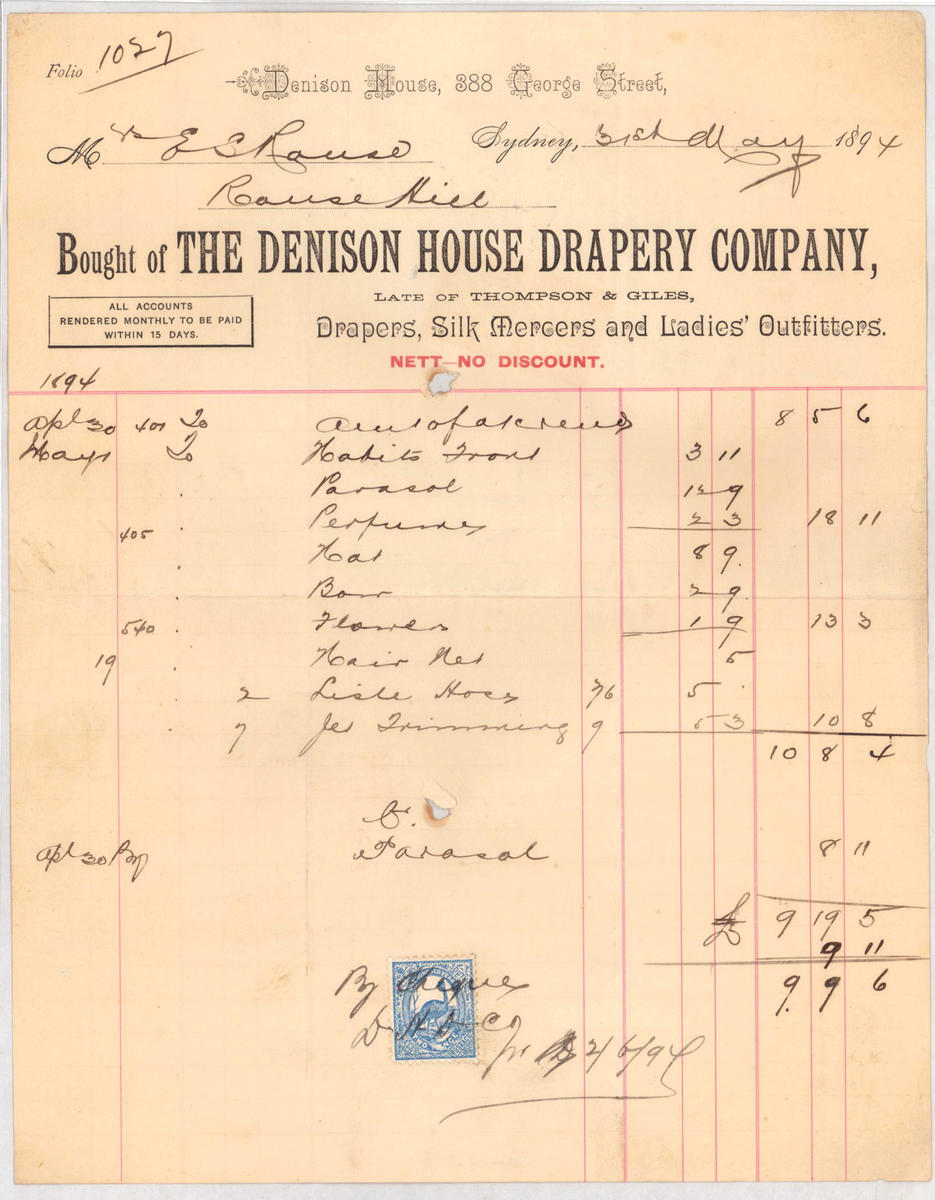 Folio 1027
Denison House, 388 George Street,
Mrs E S Rouse Sydney, 31st May 1894
Rouse Hill
Bought of THE DENISON HOUSE DRAPERY COMPANY,
LATE OF THOMPSON & GILES,
ALL ACCOUNTS
RENDERED MONTHLY TO BE PAID
WITHIN 15 DAYS.
Drapers, Silk Mercers and Ladies' Outfitters.
NETT—NO DISCOUNT.
1894
Apl 30 401 To 8 5 6
May To Habits Front 3 11
Parasol 12 9
Perfumes 2 3 18 11
405 Hat 8 9
Bow 2 9
540 Flowers 1 9 13 3
19 Hair Net 5
2 Lisle Hose 2/6 5
7 Jet Trimming 9 5 3 10 8
10 8 4
Cr.
Apl 30 By Parasol 8 11
£ 9 19 5
9 11
By Cheque 9 9 6
D H D Co
2/6/94